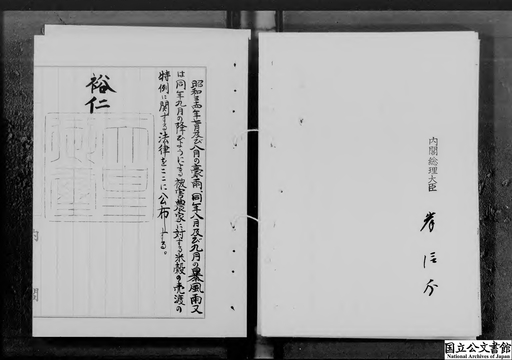 昭和三十四年七月及び八月の豪雨、同年八月及び九月の暴風雨又
は同年九月の降ひようによる被害農家に対する米穀の売渡の
特例に関する法律をここに公布する。
裕仁
内閣総理大臣
岸信介
内閣
国立公文書館
National Archives of Japan